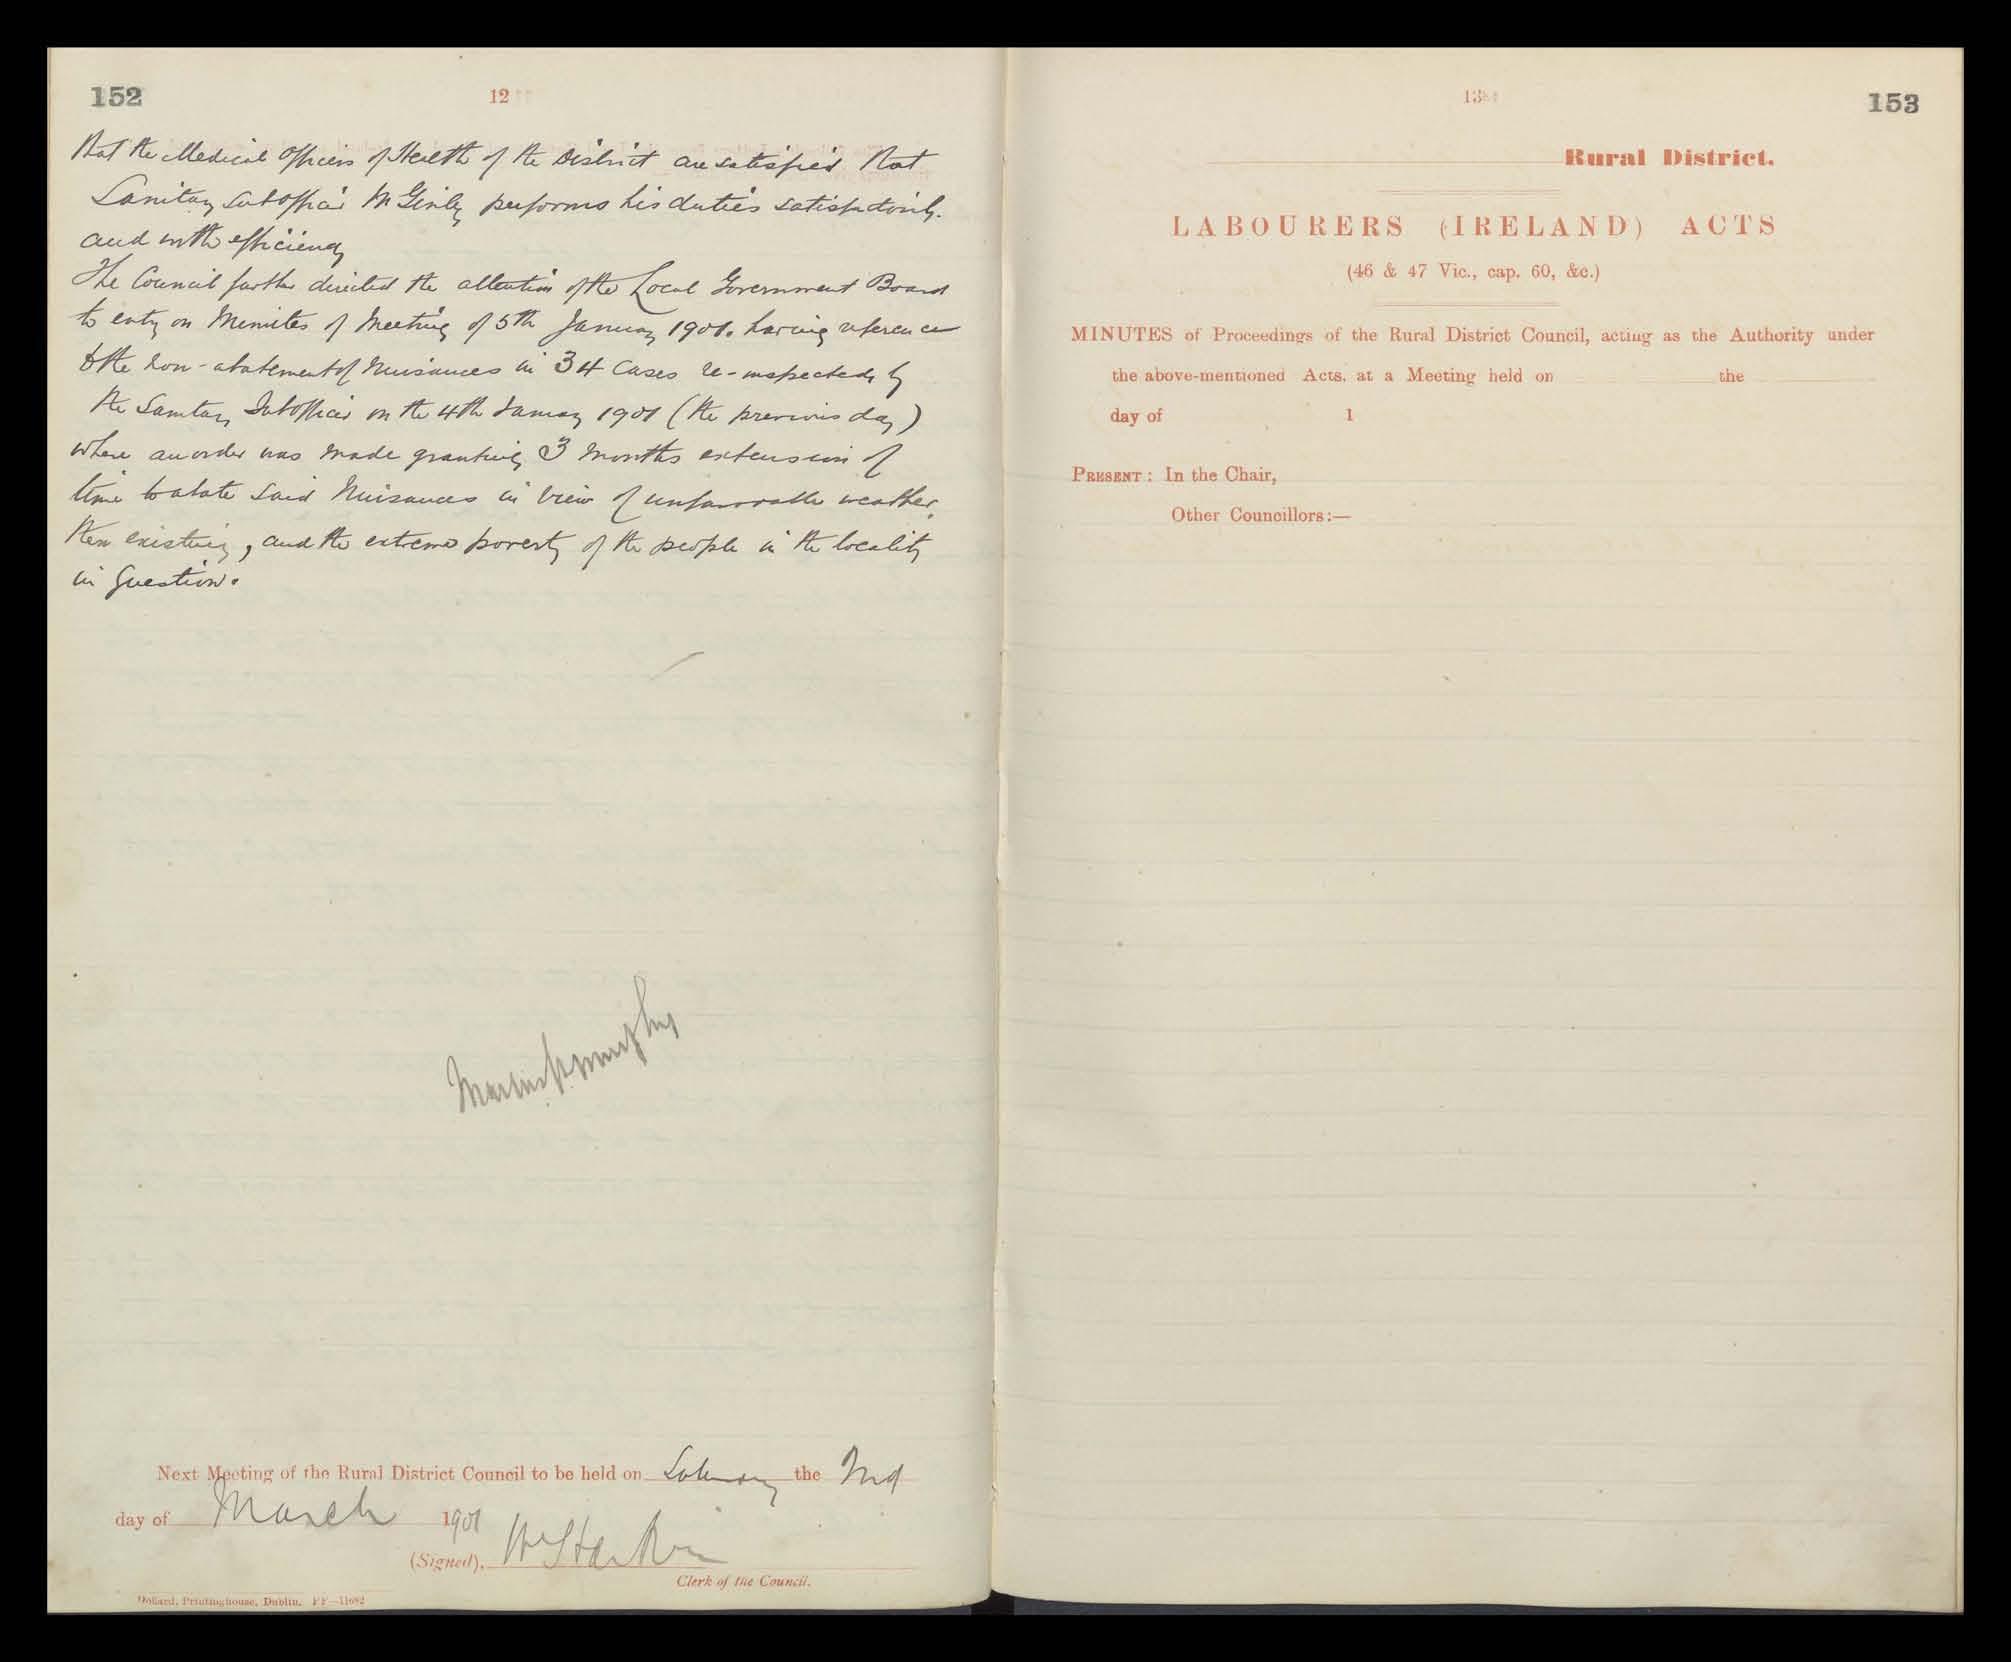 152
12
that the Medical Officers of Health of the District are satisfied that
Sanitary Sub officer McGinley performs his duties satisfactorily.
and with efficiency
The Council further directed the attention of the Local Government Board
to entry on Minutes of Meeting of 5th January 1901. having reference
to the non-abatement of Nuisances in 34 Cases re-inspected by
the Sanitary Sub officer on the 4th January 1901 (the previous day)
where an order was made granting 3 months extension of
time to abate said Nuisances in view of unfavorable weather,
then existing, and the extreme poverty of the people in the locality
in Question.
Next Meeting of the Rural District Council to be held on Saturday the 2nd
day of March 1901
(Signed),
Clerk of the Council.
Dollard, Printinghouse, Dublin. FF—11682
13
153
Rural District.
LABOURERS (IRELAND) ACTS
(46 & 47 Vic., cap. 60, &c.)
MINUTES of Proceedings of the Rural District Council, acting as the Authority under
the above-mentioned Acts, at a Meeting held on the
day of 1
PRESENT: In the Chair,
Other Councillors:—